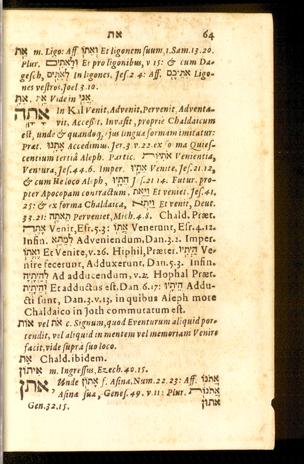 את 64
את m. Ligo: Aff. ואתו Et ligonem suum, 1. Sam. 13. 20.
Plur. ולאתים Et pro ligonibus, v 15: & cum Da-
gesch, לאתים In ligones, Jes. 2. 4: Aff. אתיכם Ligo-
nes vestros. Joel 3. 10.
את, את Vide in אני
אתה In Kal Venit, Advenit, Pervenit, Adventa-
vit, Accessit. Invasit, proprie Chaldaicum
est, unde & quandoq, ejus lingua formam imitatur:
Præt. אתנו Accedimus. Jer. 3 v. 22. ex ה mo Quies-
centium tertia Aleph. Partic. אתיות Venientia,
Ventura, Jes. 44. 6. Imper. אתיו Venite. Jes. 21. 12,
& cum He loco Aliph, התיו Jes. 21. 14. Futur. pro-
pter Apocopam contractum, ויאת Et veniet. Jes. 41,
25: & ex forma Chaldaica, ויתא Et venit, Deut.
33. 21: תאתה Perveniet, Mich. 4. 8. Chald. Præt.
אתה Venit, Esr. 5. 3: אתו Venerunt, Esr. 4. 12.
Infin. למתא Adveniendum, Dan. 3. 2. Imper.
ואתו Et Venite, v. 26. Hiphil, Præter. היתיו Ve-
nire fecerunt, Adduxerunt. Dan. 5. 3. Infin.
להיתיה Ad adducendum, v. 2. Hophal Præt.
והיתית Et adductus est. Dan. 6. 17: היתיו Addu-
cti sunt, Dan. 3. v. 13. in quibus Aleph more
Chaldaico in Joch commutatum est.
אות vel את c. Signum, quod Eventurum aliquid por-
tendit, vel aliquid in mentem vel memoriam Venire
facit, vide supra suo loco.
את Chald. ibidem.
איתון m. Ingressus, Ezech. 40. 15.
אתן Unde אתון f. Asina. Num. 22. 23: Aff. אתנו
Asina sua, Genes. 49. v. 11: Plur. אתנות
Gen. 32. 15. אתון